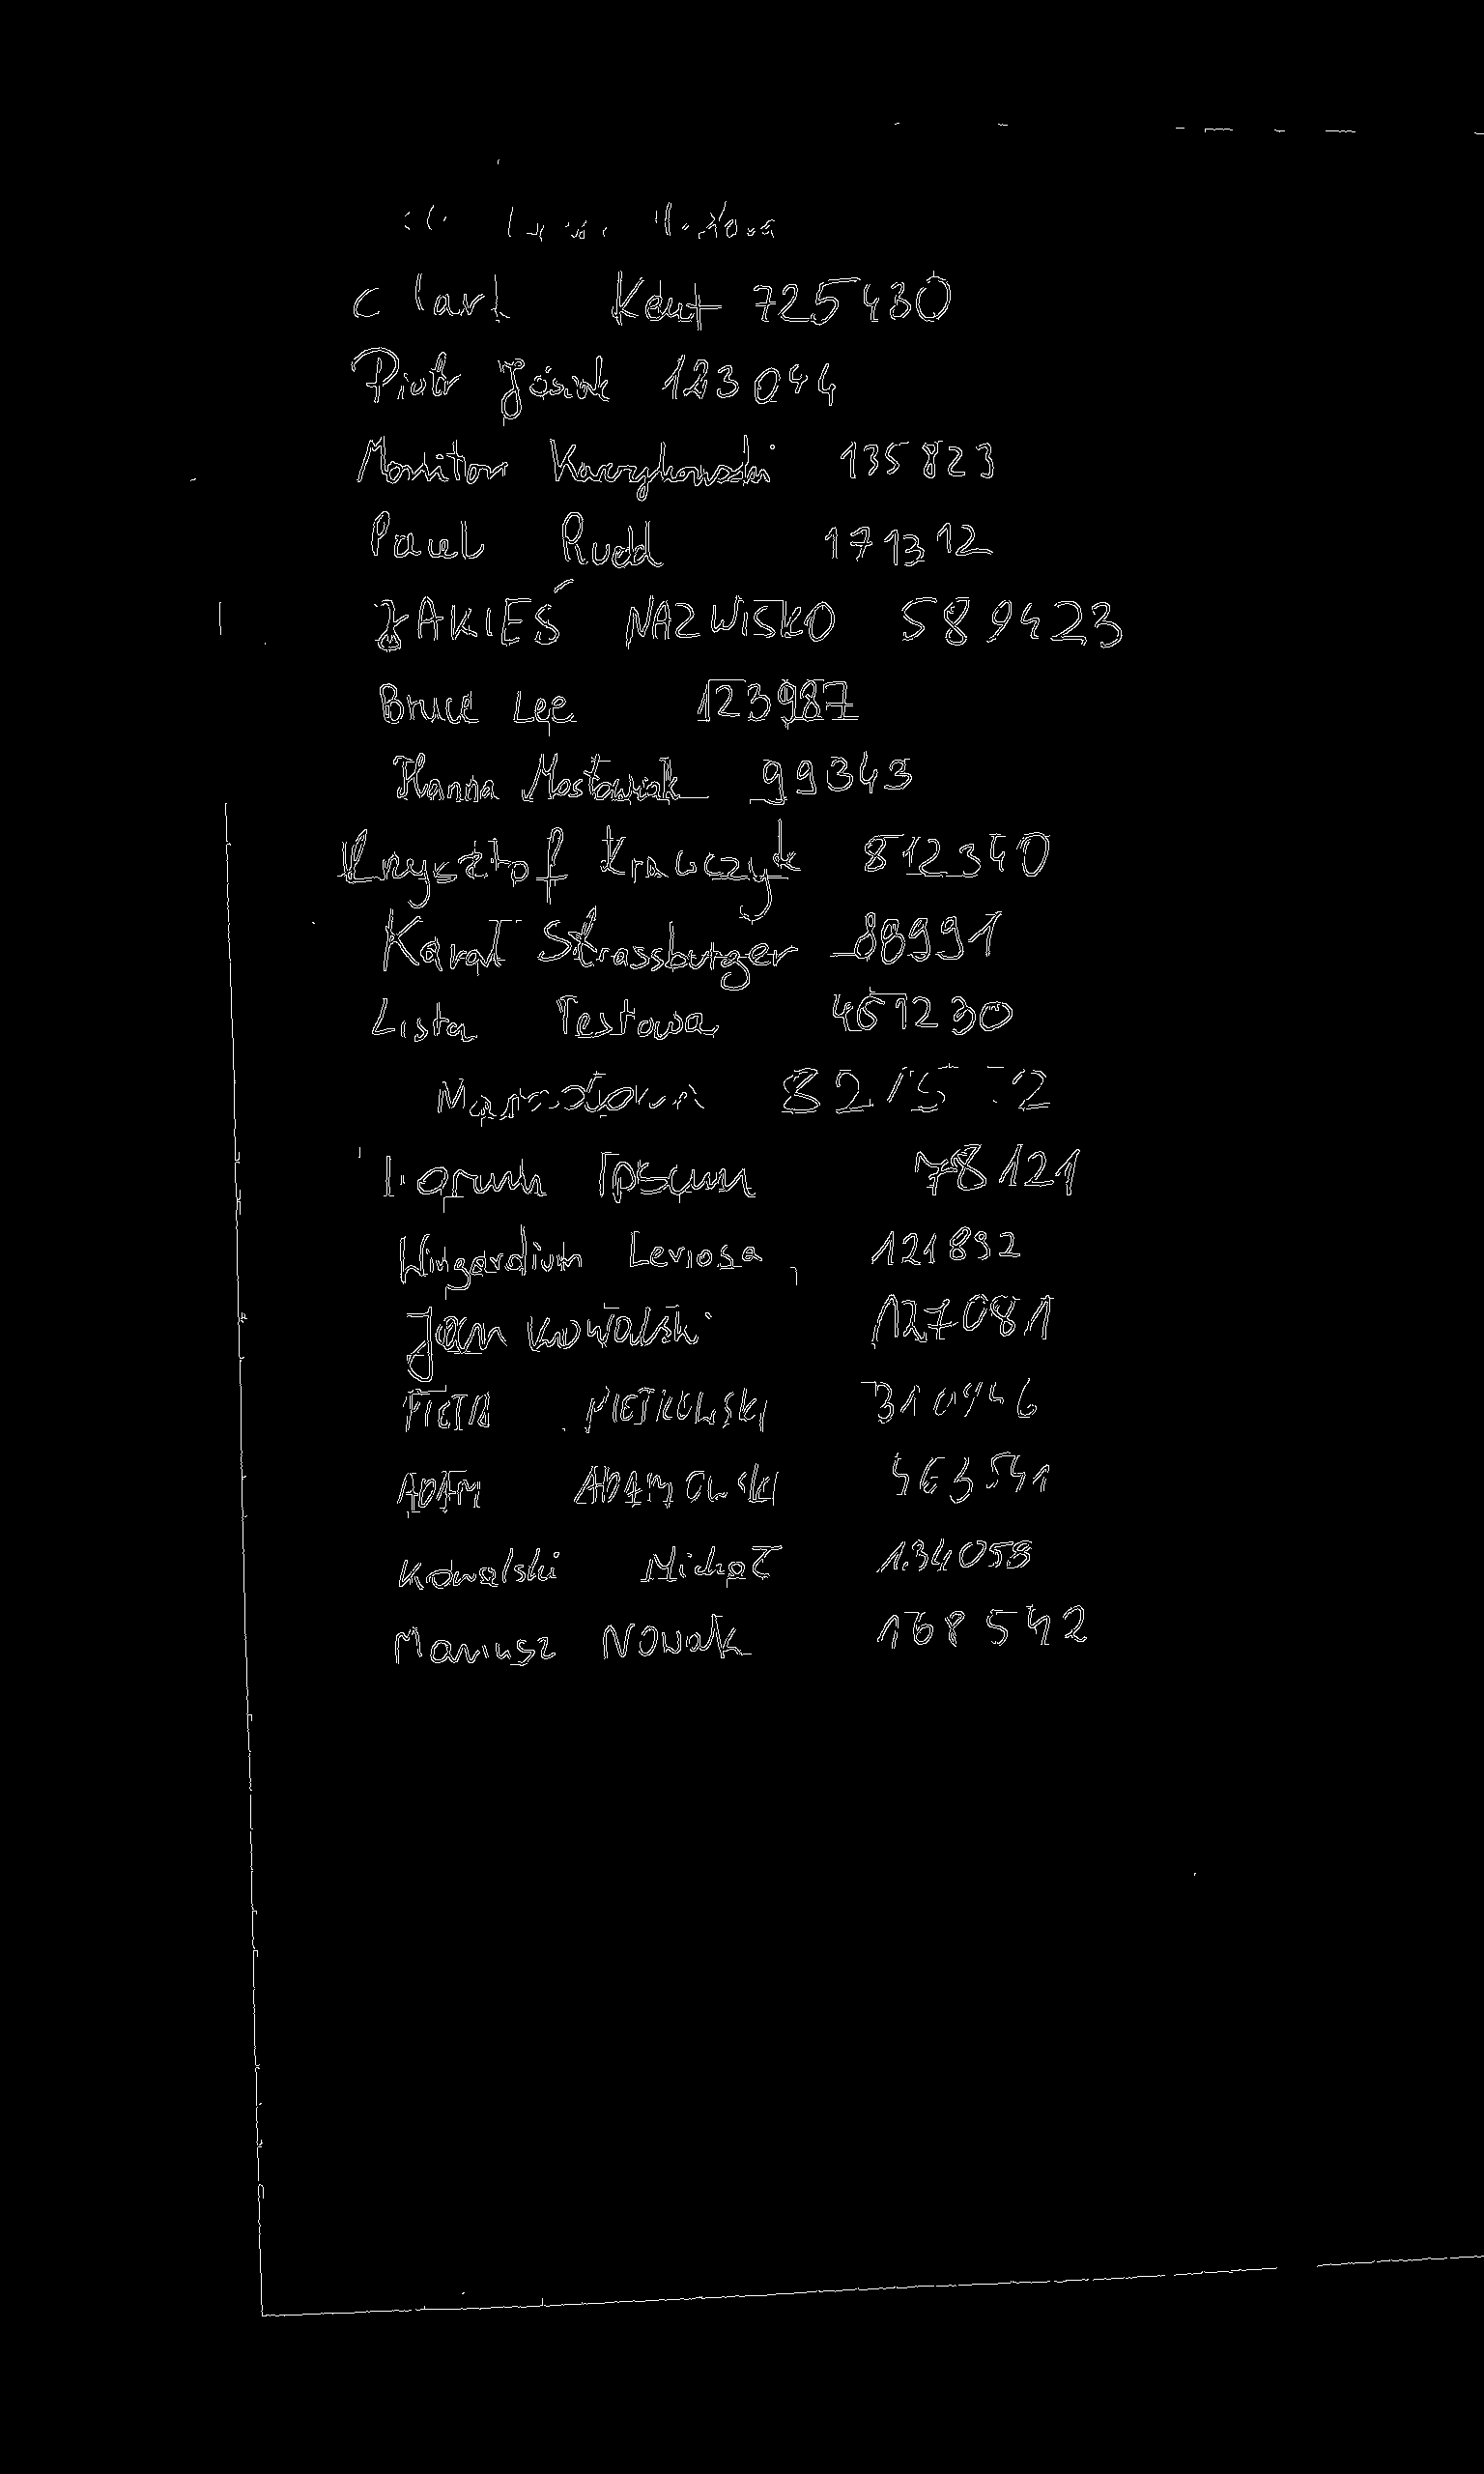 Clark Kent 725430
Piotr Jósiak 123044
Monitor Kaczykowski 135823
Paweł Rudd 171312
JAKIEŚ NAZWISKO 589423
Bruce Lee 123987
Hanna Mostowiak 99343
Krzysztof Krawczyk 812340
Karol Strassburger 88991
Lista Testowa 451230
Ipsum 78121
Wingardium Leviosa, 121892
Jan Kowalski 127081
ADAM ADAMOWSKI 463541
Kowalski Michał 134059
Mariusz Nowak 168542